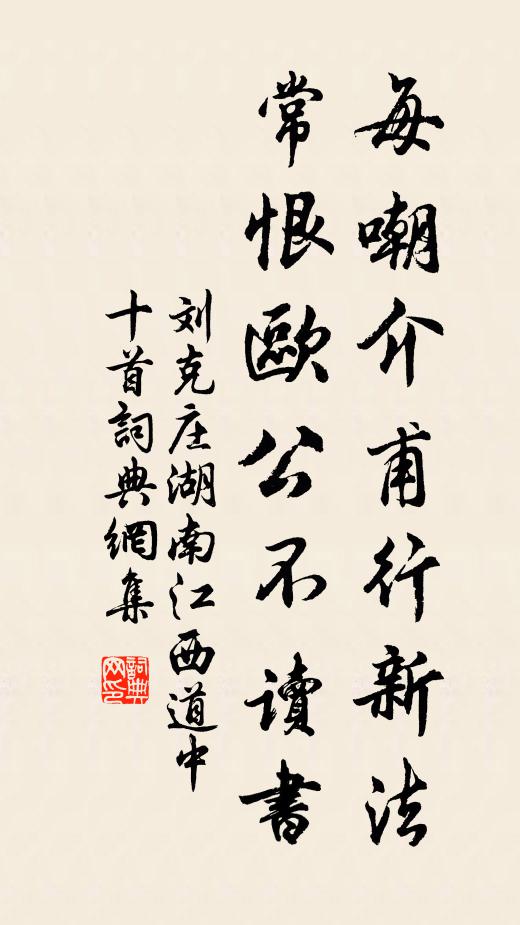 每嘲介甫行新法
常恨歐公不讀書
刘克庄湖南江西道中
十首詞典網集
詞典
网印